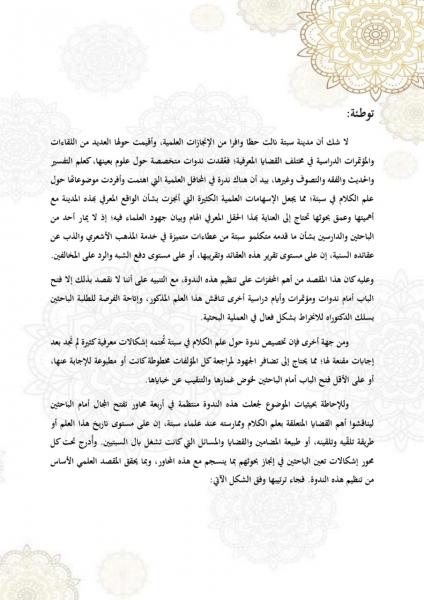 توطئة:
لا شك أن مدينة سبتة نالت حظا وافرا من الإنجازات العلمية، وأقيمت حولها العديد من اللقاءات
والمؤتمرات الدراسية في مختلف القضايا المعرفية؛ فعُقدت ندوات متخصصة حول علوم بعينها، كعلم التفسير
والحديث والفقه والتصوف وغيرها، بيد أن هناك ندرة في المحافل العلمية التي اهتمت وأفردت موضوعاتها حول
علم الكلام في سبتة؛ مما يجعل الإسهامات العلمية الكثيرة التي أنجزت بشأن الواقع المعرفي بهذه المدينة مع
أهميتها وعمق بحوثها تحتاج إلى العناية بهذا الحقل المعرفي الهام وبيان جهود العلماء فيه؛ إذ لا يمار أحد من
الباحثين والدارسين بشأن ما قدمه متكلمو سبتة من عطاءات متميزة في خدمة المذهب الأشعري والذب عن
عقائده السنية، إن على مستوى تقرير هذه العقائد وتقريبها، أو على مستوى دفع الشبه والرد على المخالفين.
وعليه كان هذا المقصد من أهم المحفزات على تنظيم هذه الندوة، مع التنبيه على أننا لا نقصد بذلك إلا فتح
الباب أمام ندوات ومؤتمرات وأيام دراسية أخرى تناقش هذا العلم المذكور، وإتاحة الفرصة للطلبة الباحثين
بسلك الدكتوراه للانخراط بشكل فعال في العملية البحثية.
ومن جهة أخرى فإن تخصيص ندوة حول علم الكلام في سبتة تُحتمه إشكالات معرفية كثيرة لم نجد بعد
إجابات مقنعة لها؛ مما يحتاج إلى تضافر الجهود لمراجعة كل المؤلفات مخطوطة كانت أو مطبوعة للإجابة عنها،
أو على الأقل فتح الباب أمام الباحثين لخوض غمارها والتنقيب عن خباياها.
وللإحاطة بحيثيات الموضوع جُعلت هذه الندوة منتظمة في أربعة محاور تفتح المجال أمام الباحثين
ليناقشوا أهم القضايا المتعلقة بعلم الكلام وممارسته عند علماء سبتة، إن على مستوى تاريخ هذا العلم أو
طريقة تلقّيه وتلقينه، أو طبيعة المضامين والقضايا والمسائل التي كانت تشغل بال السبتيين. وأدرج تحت كل
محور إشكالات تعين الباحثين في إنجاز بحوثهم بما ينسجم مع هذه المحاور، وبما يحقق المقصد العلمي الأساس
من تنظيم هذه الندوة. فجاء ترتيبها وفق الشكل الآتي: